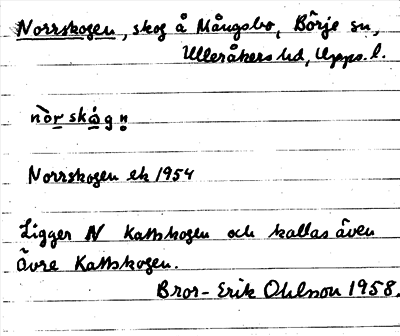 Norrskogen, skog å Mångsbo, Börje sn,
Ulleråkers hd, Upps. l.
nòr skɷ́g n̥
Norrskogen ek 1954
Ligger N Kattskogen och kallas även
Övre Kattskogen.
Bror-Erik Ohlsson 1958.